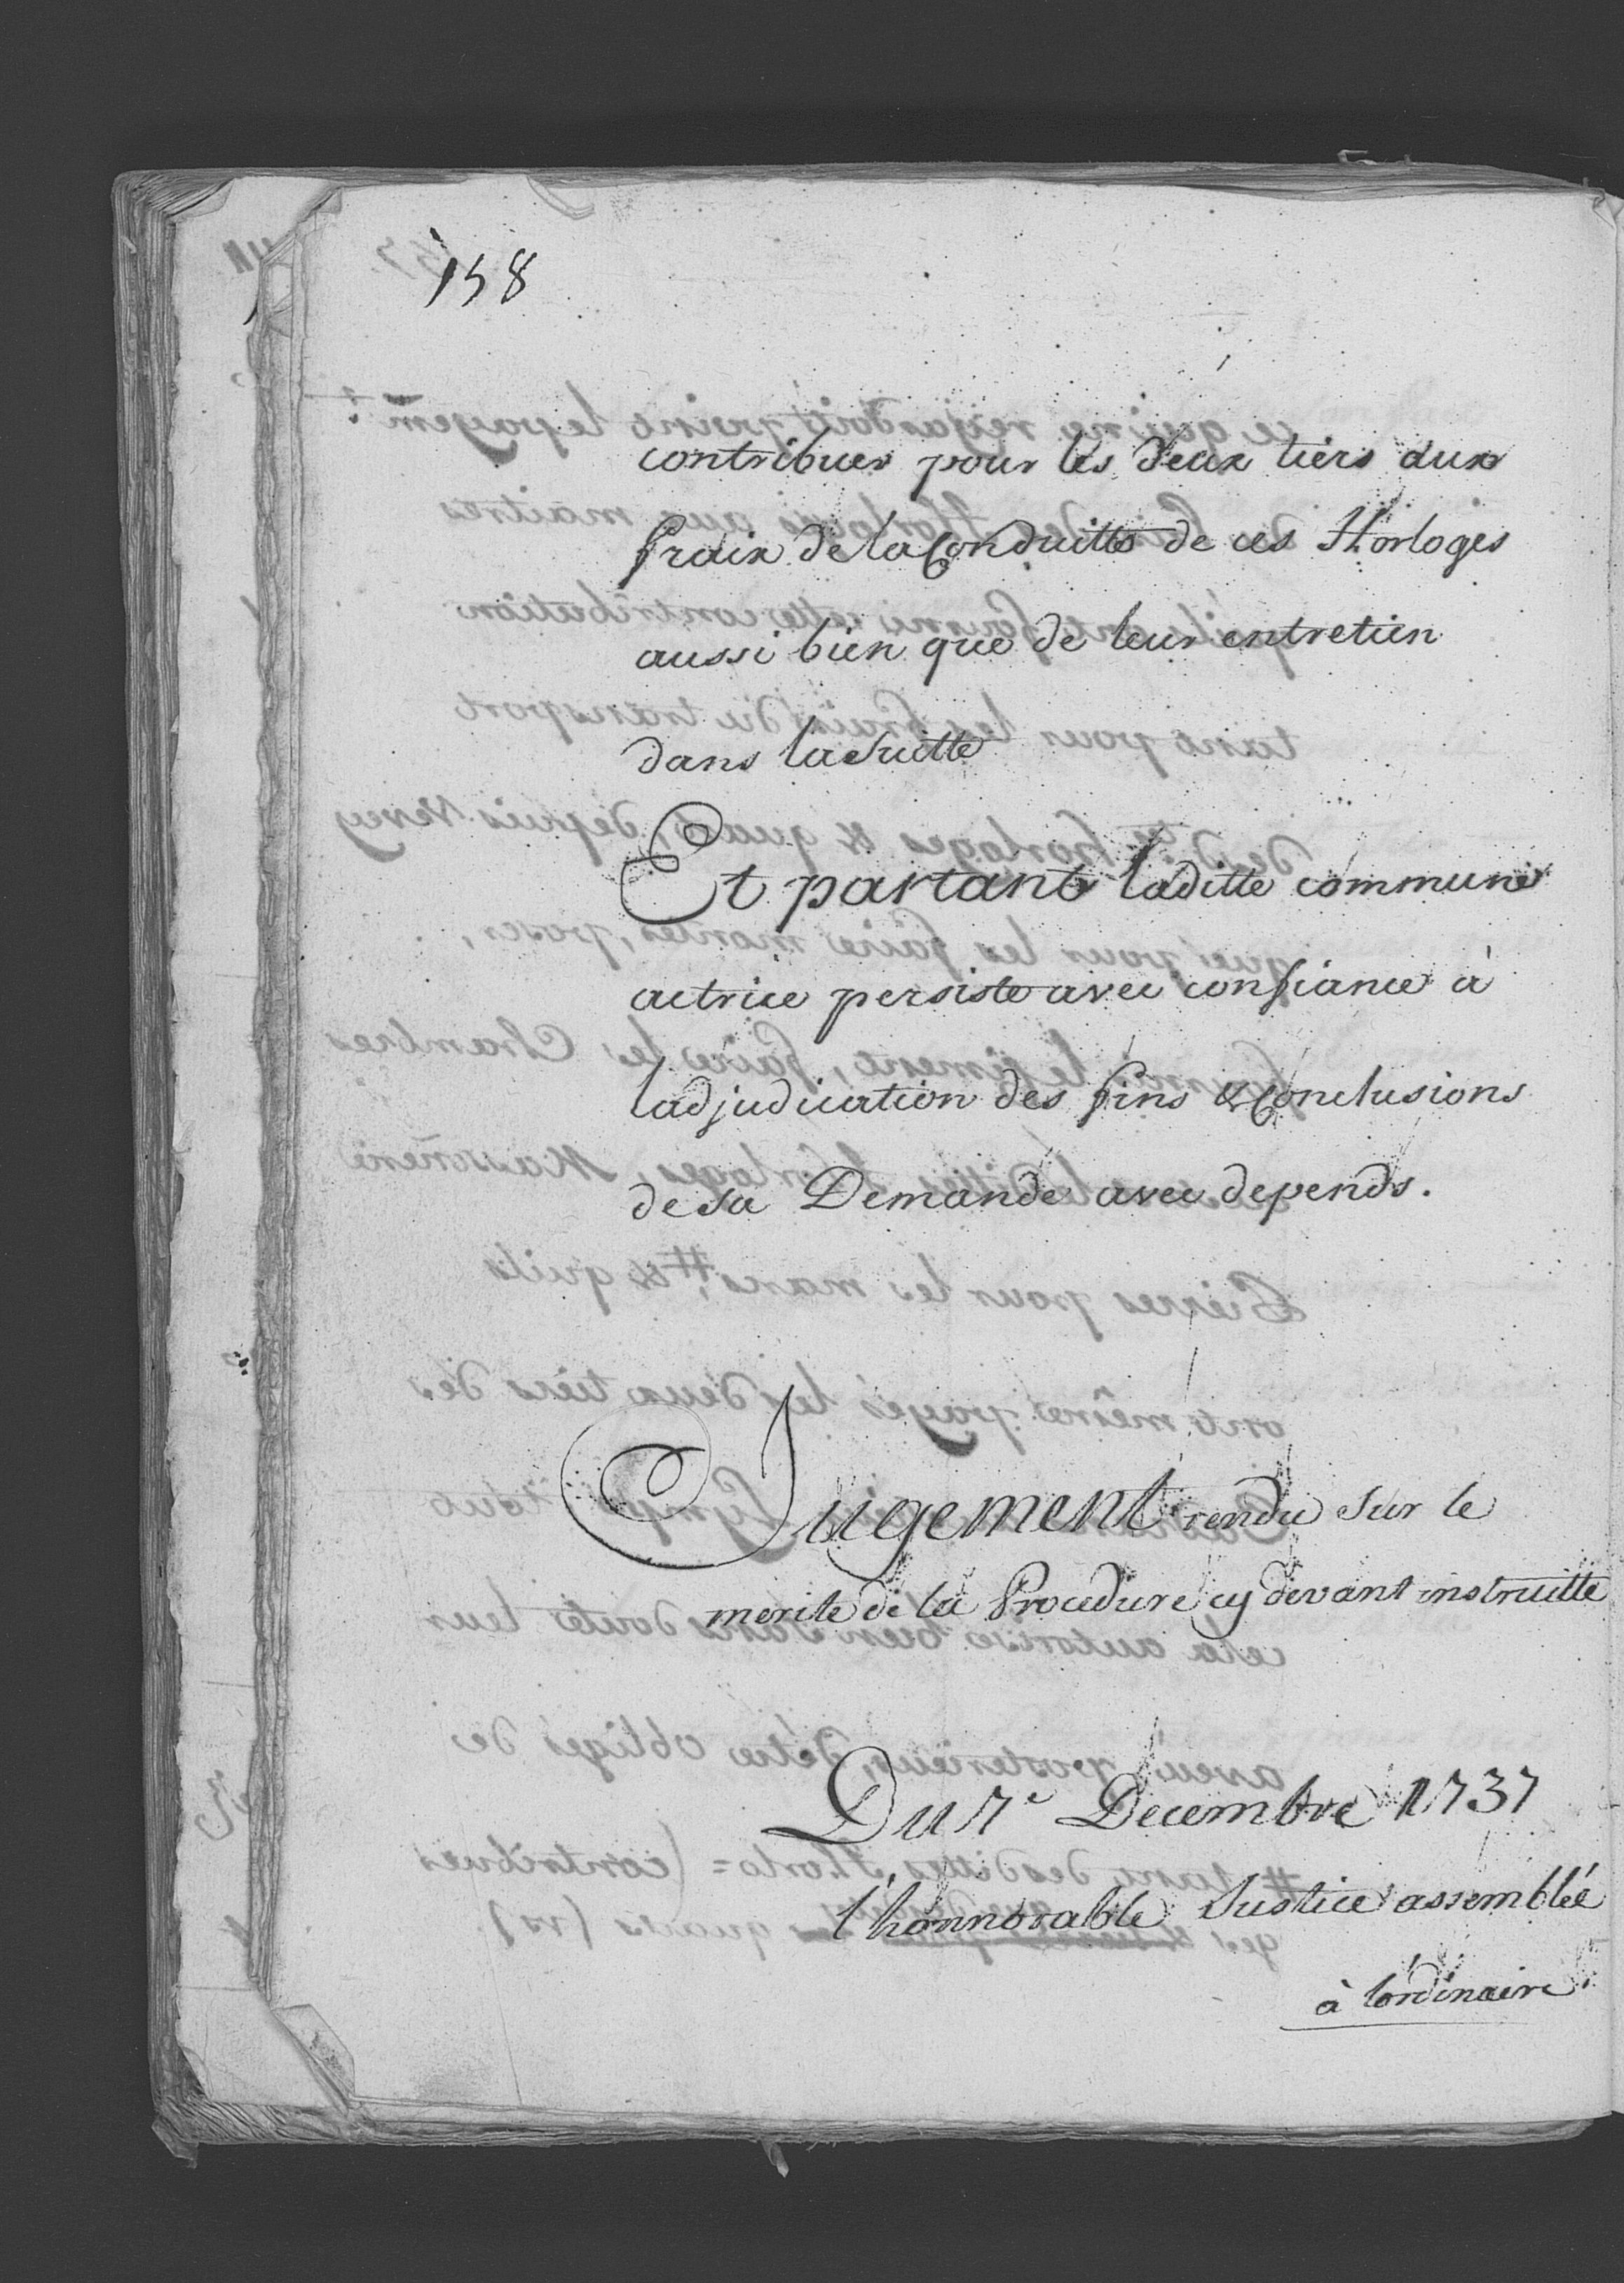 158
contribuer pour les deux tiers aux
fraix de la Conduitte de ces Horloges
aussi bien que de leur entretien
dans la Suitte
Et partant laditte commune
actrice persiste avec confiance à
ladjudication des fins & Conclusions
de sa Demande avec depends.
Jugement rendu Sur le
merite de la Procedure cy devant instruitte
Du 7e Decembre 1737
l'honnorable Justice assemblée
à lordinaire